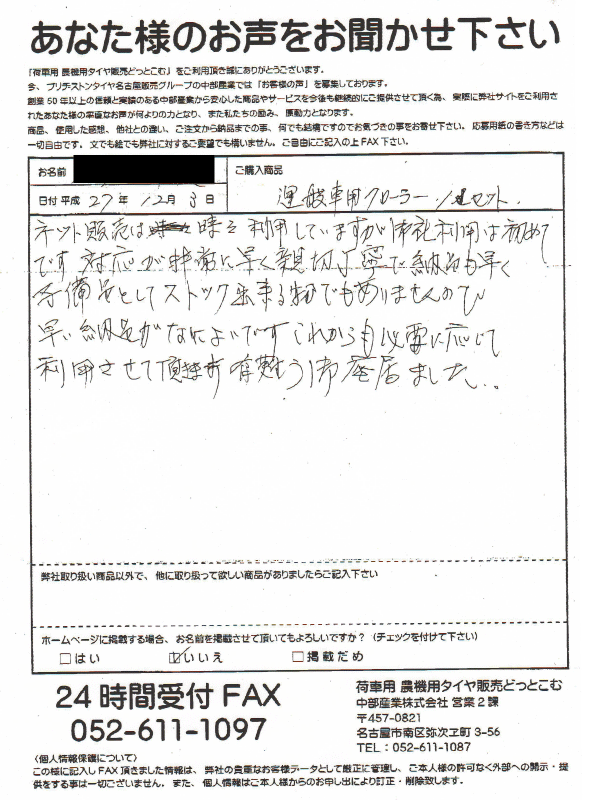 あなた様のお声をお聞かせ下さい
「荷車用 農機用タイヤ販売どっとこむ」をご利用頂き誠にありがとうございます。
今、ブリヂストンタイヤ名古屋販売グループの中部産業では「お客様の声」を募集しております。
創業50年以上の信頼と実績のある中部産業から安心した商品やサービスを今後も継続的にご提供させて頂く為、実際に弊社サイトをご利用さ
れたあなた様の率直なお声が何よりの力となり、また私たちの励み、原動力となります。
商品、使用した感想、他社との違い、ご注文から納品までの事、何でも結構ですのでお気づきの事をお寄せ下さい。応募用紙の書き方などは
一切自由です。文でも絵でも弊社に対するご要望でも構いません。ご自由にご記入の上FAX下さい。
お名前
ご購入商品
日付 平成 27年 12月 3日
運搬車用クローラー 1セット.
ネット販売は 時々利用していますが御社利用は初めて
です 対応が非常に早く親切丁寧で納品も早く
予備品としてストック出来る物でもありませんので
早い納品がなによりです これからも必要に応じて
利用させて頂きます 有難う御座居ました..
弊社取り扱い商品以外で、他に取り扱って欲しい商品がありましたらご記入下さい
ホームページに掲載する場合、お名前を掲載させて頂いてもよろしいですか？（チェックを付けて下さい）
□はい ☑いいえ □掲載だめ
24時間受付FAX
052-611-1097
荷車用 農機用タイヤ販売どっとこむ
中部産業株式会社 営業2課
〒457-0821
名古屋市南区弥次ヱ町3-56
TEL：052-611-1087
〈個人情報保護について〉
この様に記入しFAX頂きました情報は、弊社の貴重なお客様データとして厳正に管理し、ご本人様の許可なく外部への開示・提
供をする事は一切ございません。また、個人情報はご本人様からのお申し出により訂正・削除致します。